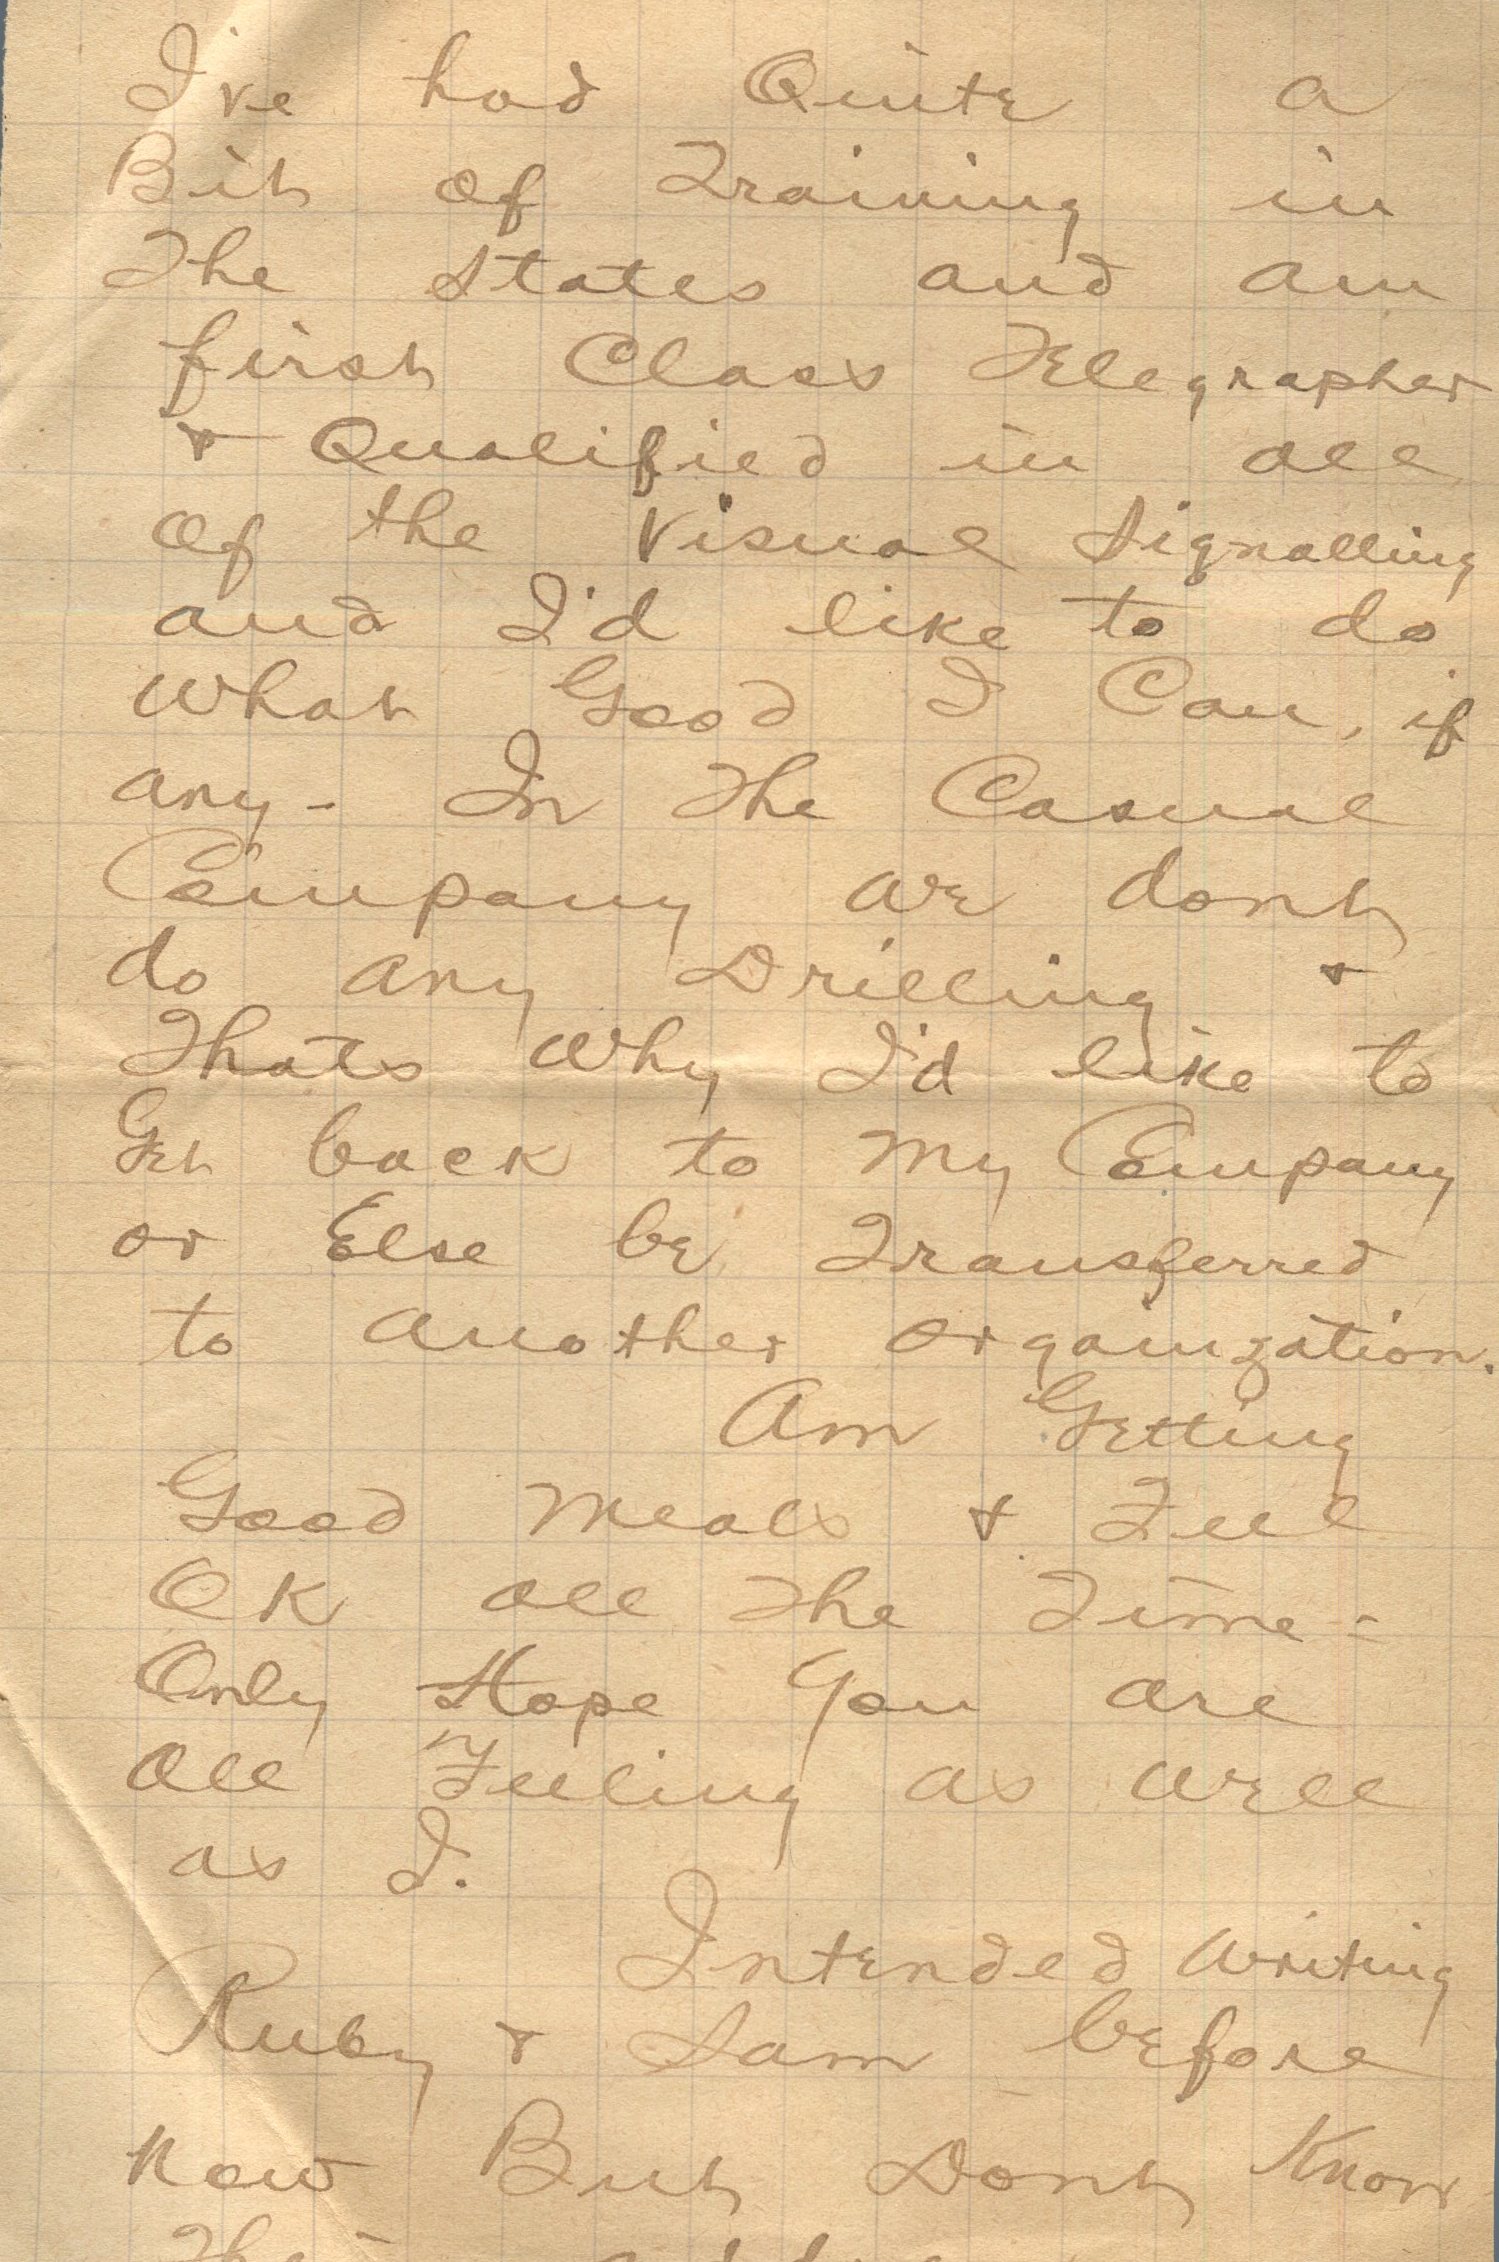 I've had Quite a
Bit of Training in
The States and am
first Class Telegrapher
+ Qualified in all
of the Visual Signalling
and I'd like to do
what Good I Can, if
any - In The Casual
Company we dont
do any Drilling +
Thats Why I'd like to
Get back to My Company
or Else be Transferred
to another organization.
Am Getting
Good Meals + Feel
OK all The Time -
Only Hope you are
all Feeling as well
as I.
Intended writing
Ruby + Sam before
now But Dont Know